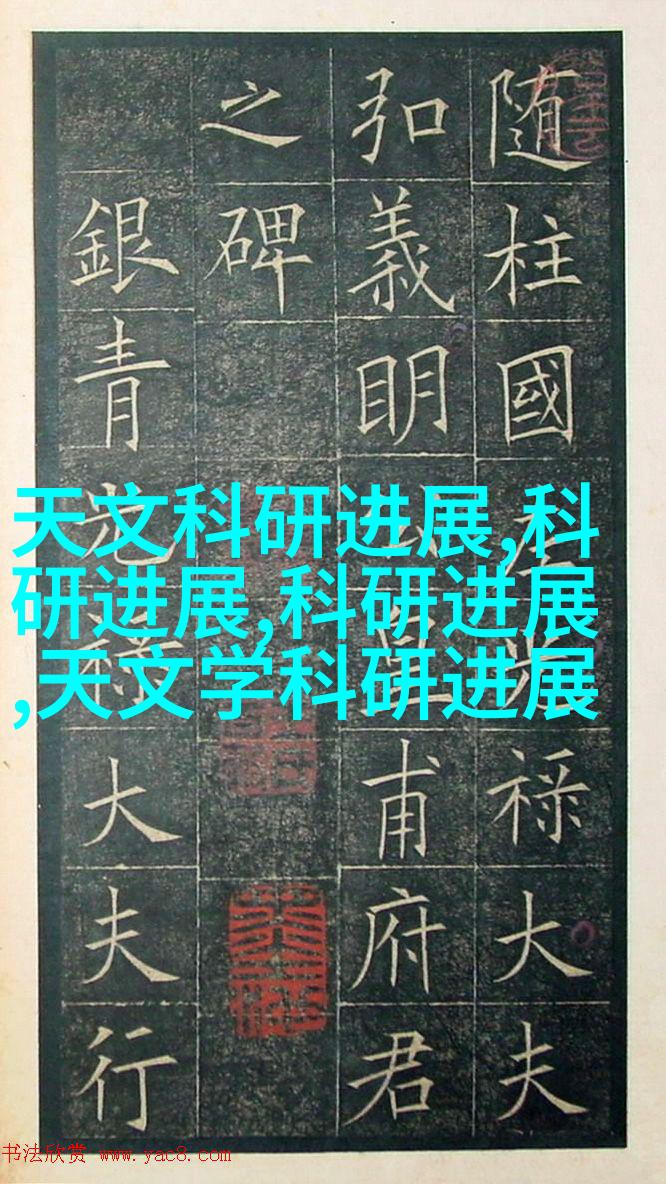 随柱國左光禄大夫
弘義明公皇甫府君
之碑
銀青光禄大夫行
天文科研进展,科
研进展,科研进展
,天文学科研进展
书法欣赏 www.yac8.com